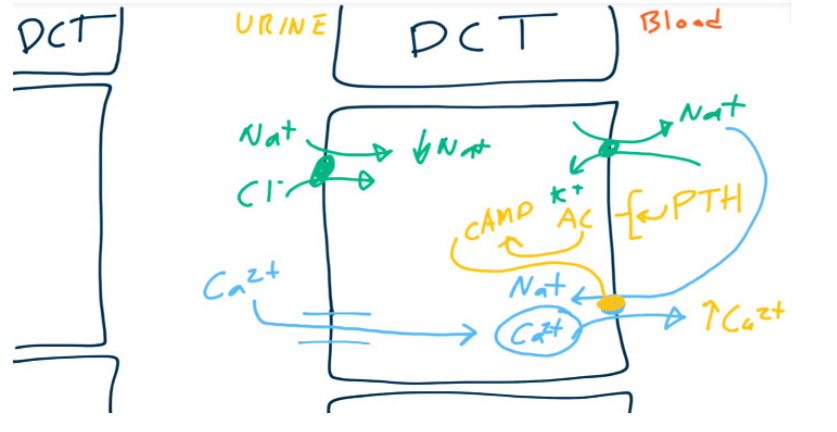 DCT
URINE
DCT
Blood
Na+
Cl-
↓Na+
Na+
K+
cAMP
AC
PTH
Ca2+
Na+
Ca2+
↑Ca2+